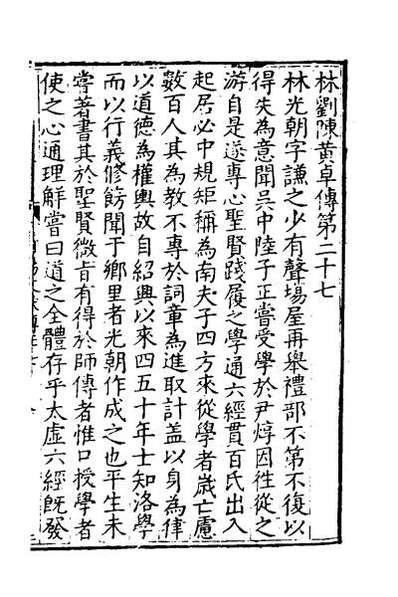 林劉陳黃卓傳第二十七
林光朝字謙之少有聲塲屋再舉禮部不第不復以
得失為意聞吳中陸子正嘗受學於尹焞因徃從之
游自是遂專心聖賢踐履之學通六經貫百氏出入
起居必中規矩稱為南夫子四方來從學者歲亡慮
數百人其為教不專於詞章為進取計盖以身為律
以道德為權輿故自紹興以來四五十年士知洛學
而以行義修飭聞于鄉里者光朝作成之也平生未
嘗著書其於聖賢微㫖有得於師傳者惟口授學者
使之心通理觧嘗曰道之全體存乎太虛六經旣發